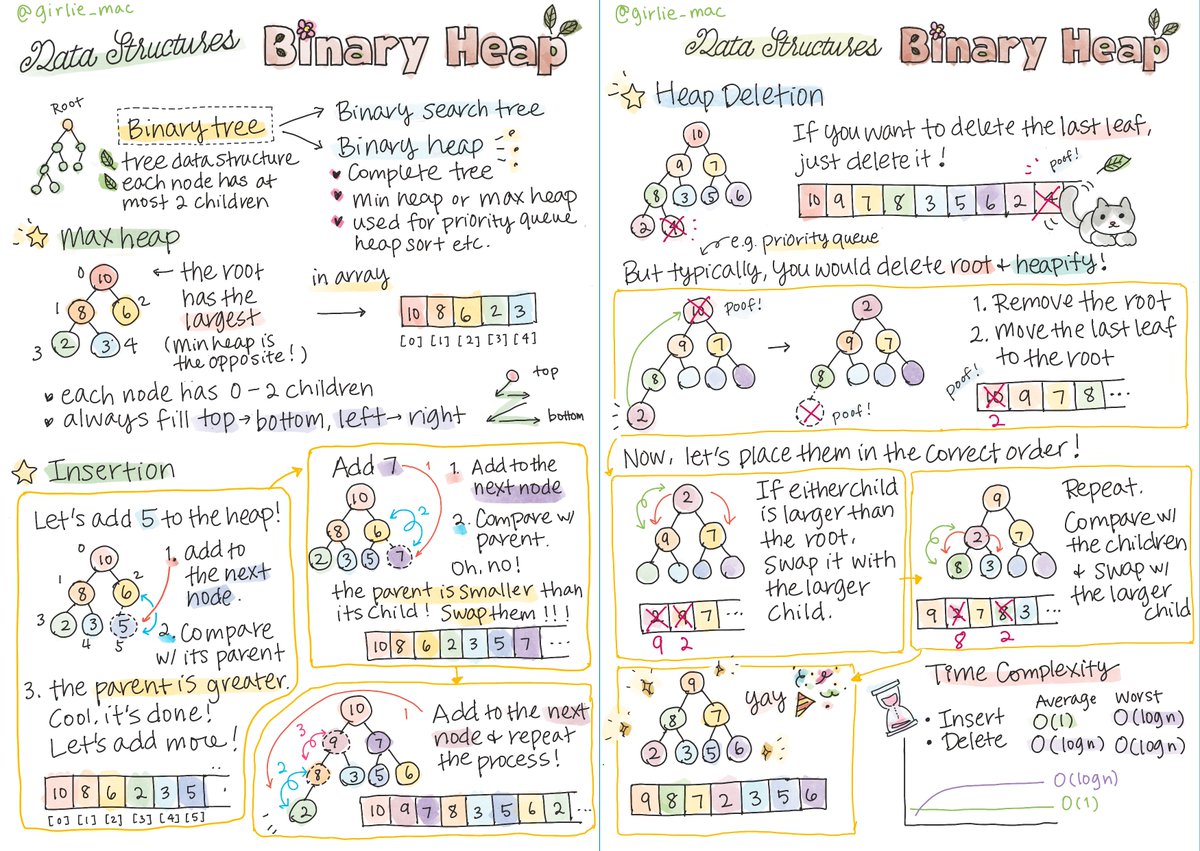 @girlie_mac
Data Structures Binary Heap
Root
Binary tree
tree data structure
each node has at
most 2 children
Binary search tree
Binary heap
Complete tree
min heap or max heap
used for priority queue
heap sort etc.
Max heap
0
10
1 8 6 2
3 2 3 4
← the root
has the
largest
(min heap is
the opposite!)
in array
10 8 6 2 3
[0] [1] [2] [3] [4]
each node has 0 - 2 children
always fill top → bottom, left → right
top
bottom
Insertion
Let's add 5 to the heap!
0
10
1 8 6 2
3 2 3 5
4 5
1. add to
the next
node.
2. Compare
w/ its parent
3. the parent is greater.
Cool, it's done!
Let's add more!
10 8 6 2 3 5 ...
[0] [1] [2] [3] [4] [5]
Add 7
1
10
8 6
2 3 5 7
2
1. Add to the
next node
2. Compare w/
parent.
Oh, no!
the parent is smaller than
its child! Swap them!!!
10 8 6 2 3 5 7 ...
1
10
3 9 7
2 8 3 5 6
2
Add to the next
node & repeat
the process!
10 9 7 8 3 5 6 2 ...
@girlie_mac
Data Structures Binary Heap
Heap Deletion
10
9 7
8 3 5 6
2 4
If you want to delete the last leaf,
just delete it!
poof!
10 9 7 8 3 5 6 2 4
e.g. priority queue
But typically, you would delete root & heapify!
10 poof!
9 7
8
2
→
2
9 7
8
poof!
1. Remove the root
2. Move the last leaf
to the root
poof!
10 9 7 8 ...
2
Now, let's place them in the correct order!
2
9 7
If either child
is larger than
the root,
swap it with
the larger
child.
2 9 7 ...
9 2
9
2 7
8 3
Repeat.
Compare w/
the children
& swap w/
the larger
child
9 2 7 8 3 ...
8 2
9
8 7
2 3 5 6
yay
9 8 7 2 3 5 6
Time Complexity
Average Worst
Insert O(1) O(logn)
Delete O(logn) O(logn)
O(logn)
O(1)